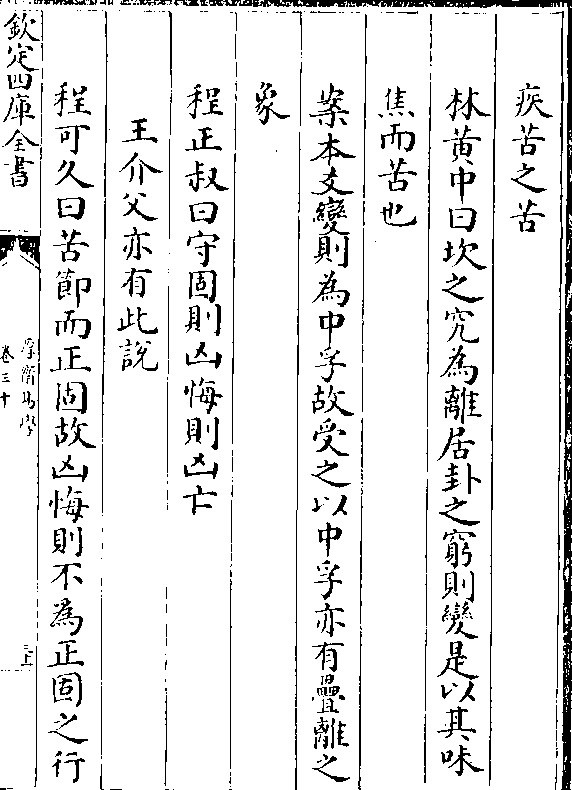 疾苦之苦
林黄中曰坎之究為離居卦之窮則變是以其味
焦而苦也
案本爻變則為中孚故受之以中孚亦有疊離之
象
程正叔曰守固則凶悔則凶亡
王介父亦有此說
程可久曰苦節而正固故凶悔則不為正固之行
欽定四庫全書
厚齋易學
卷三十